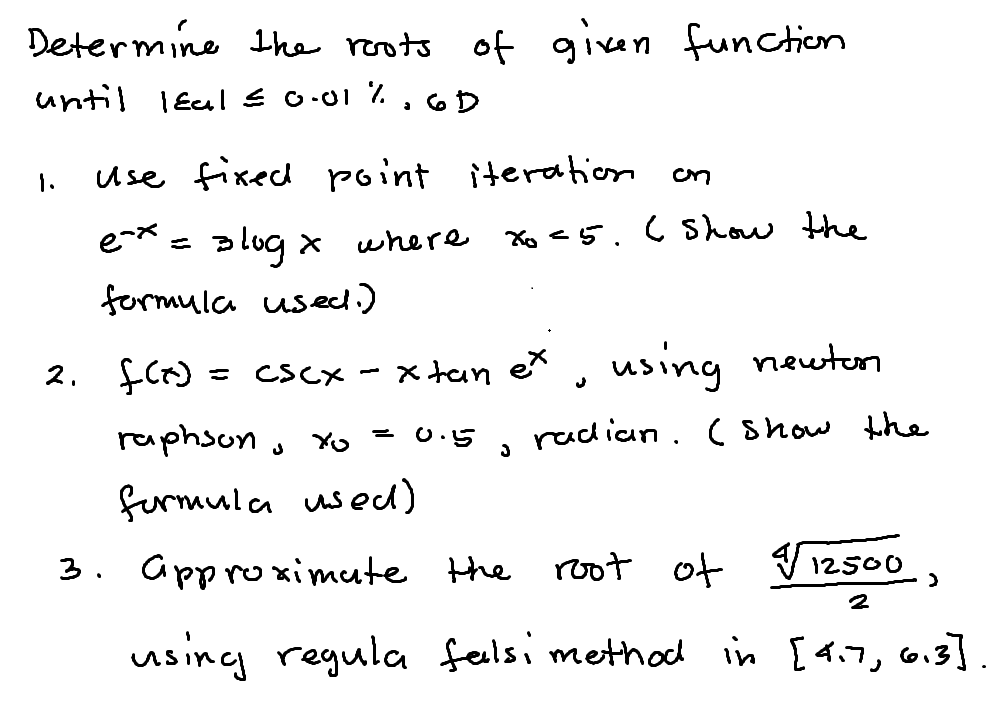 Determine the roots of given function
until |εa| ≤ 0.01 %, 6D
1. Use fixed point iteration on
e^-x = 3log x where x₀ = 5. ( Show the
formula used.)
2. f(x) = cscx - x tan e^x , using newton
raphson , x₀ = 0.5 , radian. ( Show the
formula used)
3. Approximate the root of ∜12500 / 2 ,
using regula falsi method in [4.7, 6.3].